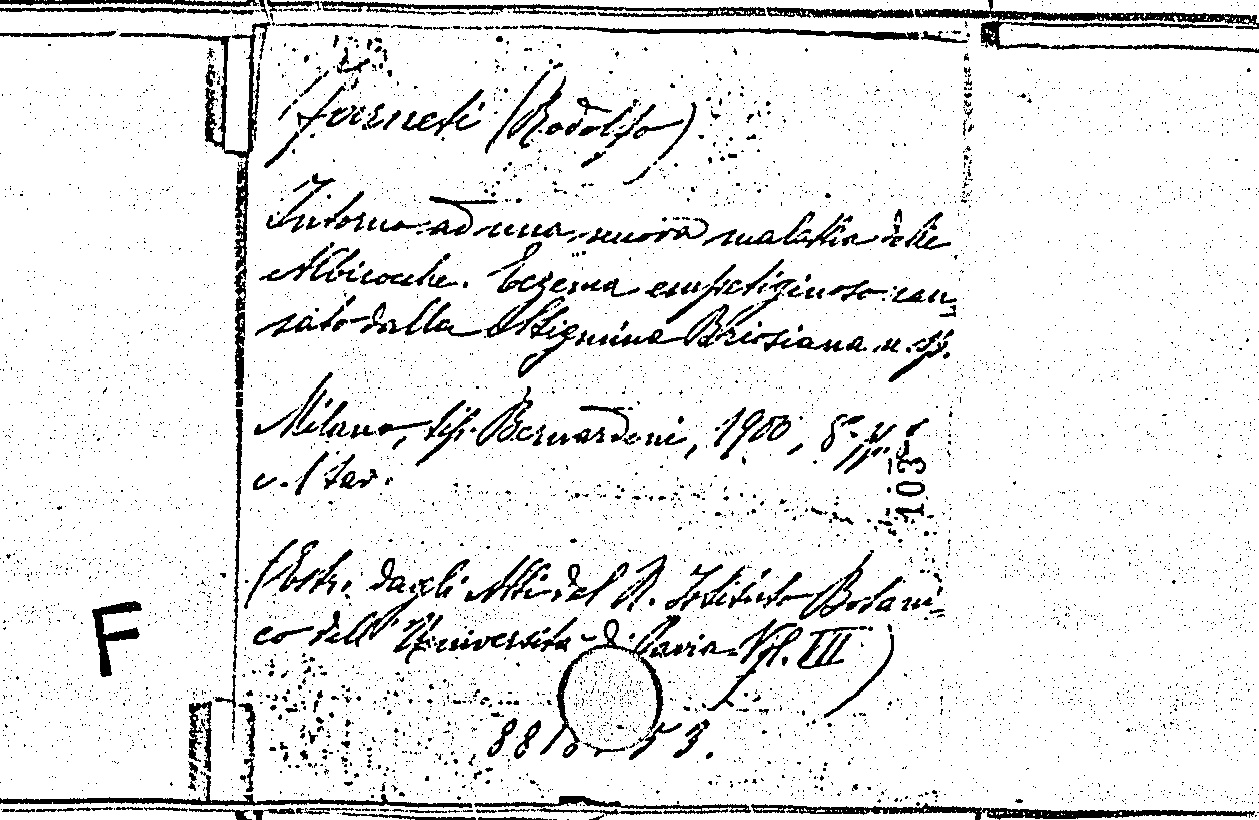 Farneti (Rodolfo)
Intorno ad una nuova malattia delle
Albicocche. Eczema empetiginoso cau
sato dalla Stigmina Briosiana n. sp.
Milano, tip. Bernardoni, 1900, 8°
c. 1 tav.
103
(Estr. dagli Atti del R. Istituto Botani-
co dell'Università di Pavia Vol. VII)
F
53.